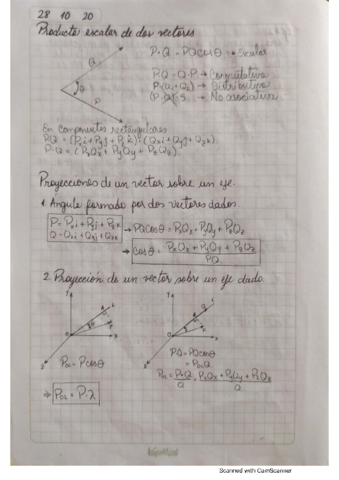 28 10 20
Producto escalar de dos vectores
Q
θ
P
P·Q = PQcosθ → Escalar
P·Q = Q·P → Conmutativa
P·(Q₁+Q₂) → Distributiva
(P·Q)·S → No asociativa
En componentes rectangulares
P·Q = (Pxi+Pyj+Pzk)·(Qxi+Qyj+Qzk)
P·Q = (PxQx+PyQy+PzQz)
Proyecciones de un vector sobre un eje.
1. Angulo formado por dos vectores dados.
→ PQcosθ = PxQx+PyQy+PzQz
→ cosθ = PxQx+PyQy+PzQz / PQ
2. Proyección de un vector sobre un eje dado.
POL = Pcosθ
PQ = PQcosθ
= POLQ
POL = P·Q / Q = PxQx+PyQy+PzQz / Q
⇒ POL = P·λ
Scanned with CamScanner